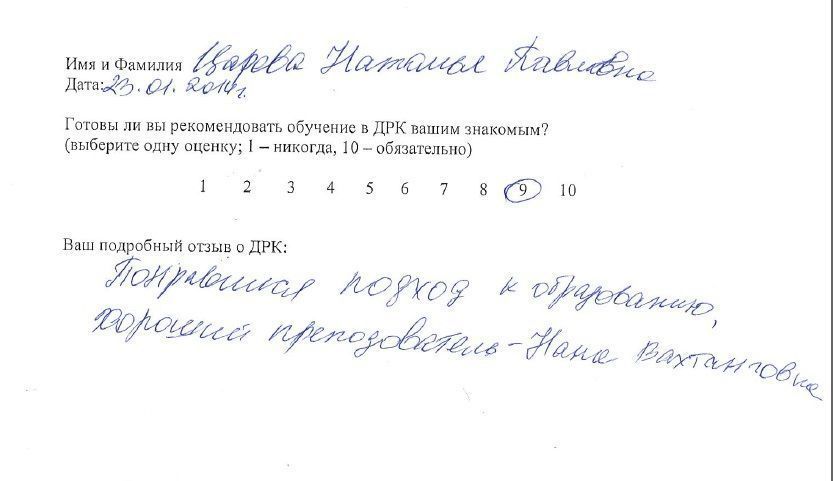 Имя и Фамилия Царева Наталья Павловна
Дата: 23.01.2014г.
Готовы ли вы рекомендовать обучение в ДРК вашим знакомым?
(выберите одну оценку; 1 – никогда, 10 – обязательно)
1 2 3 4 5 6 7 8 9 10
Ваш подробный отзыв о ДРК:
Понравился подход к образованию,
хороший преподователь - Нана Вахтанговна